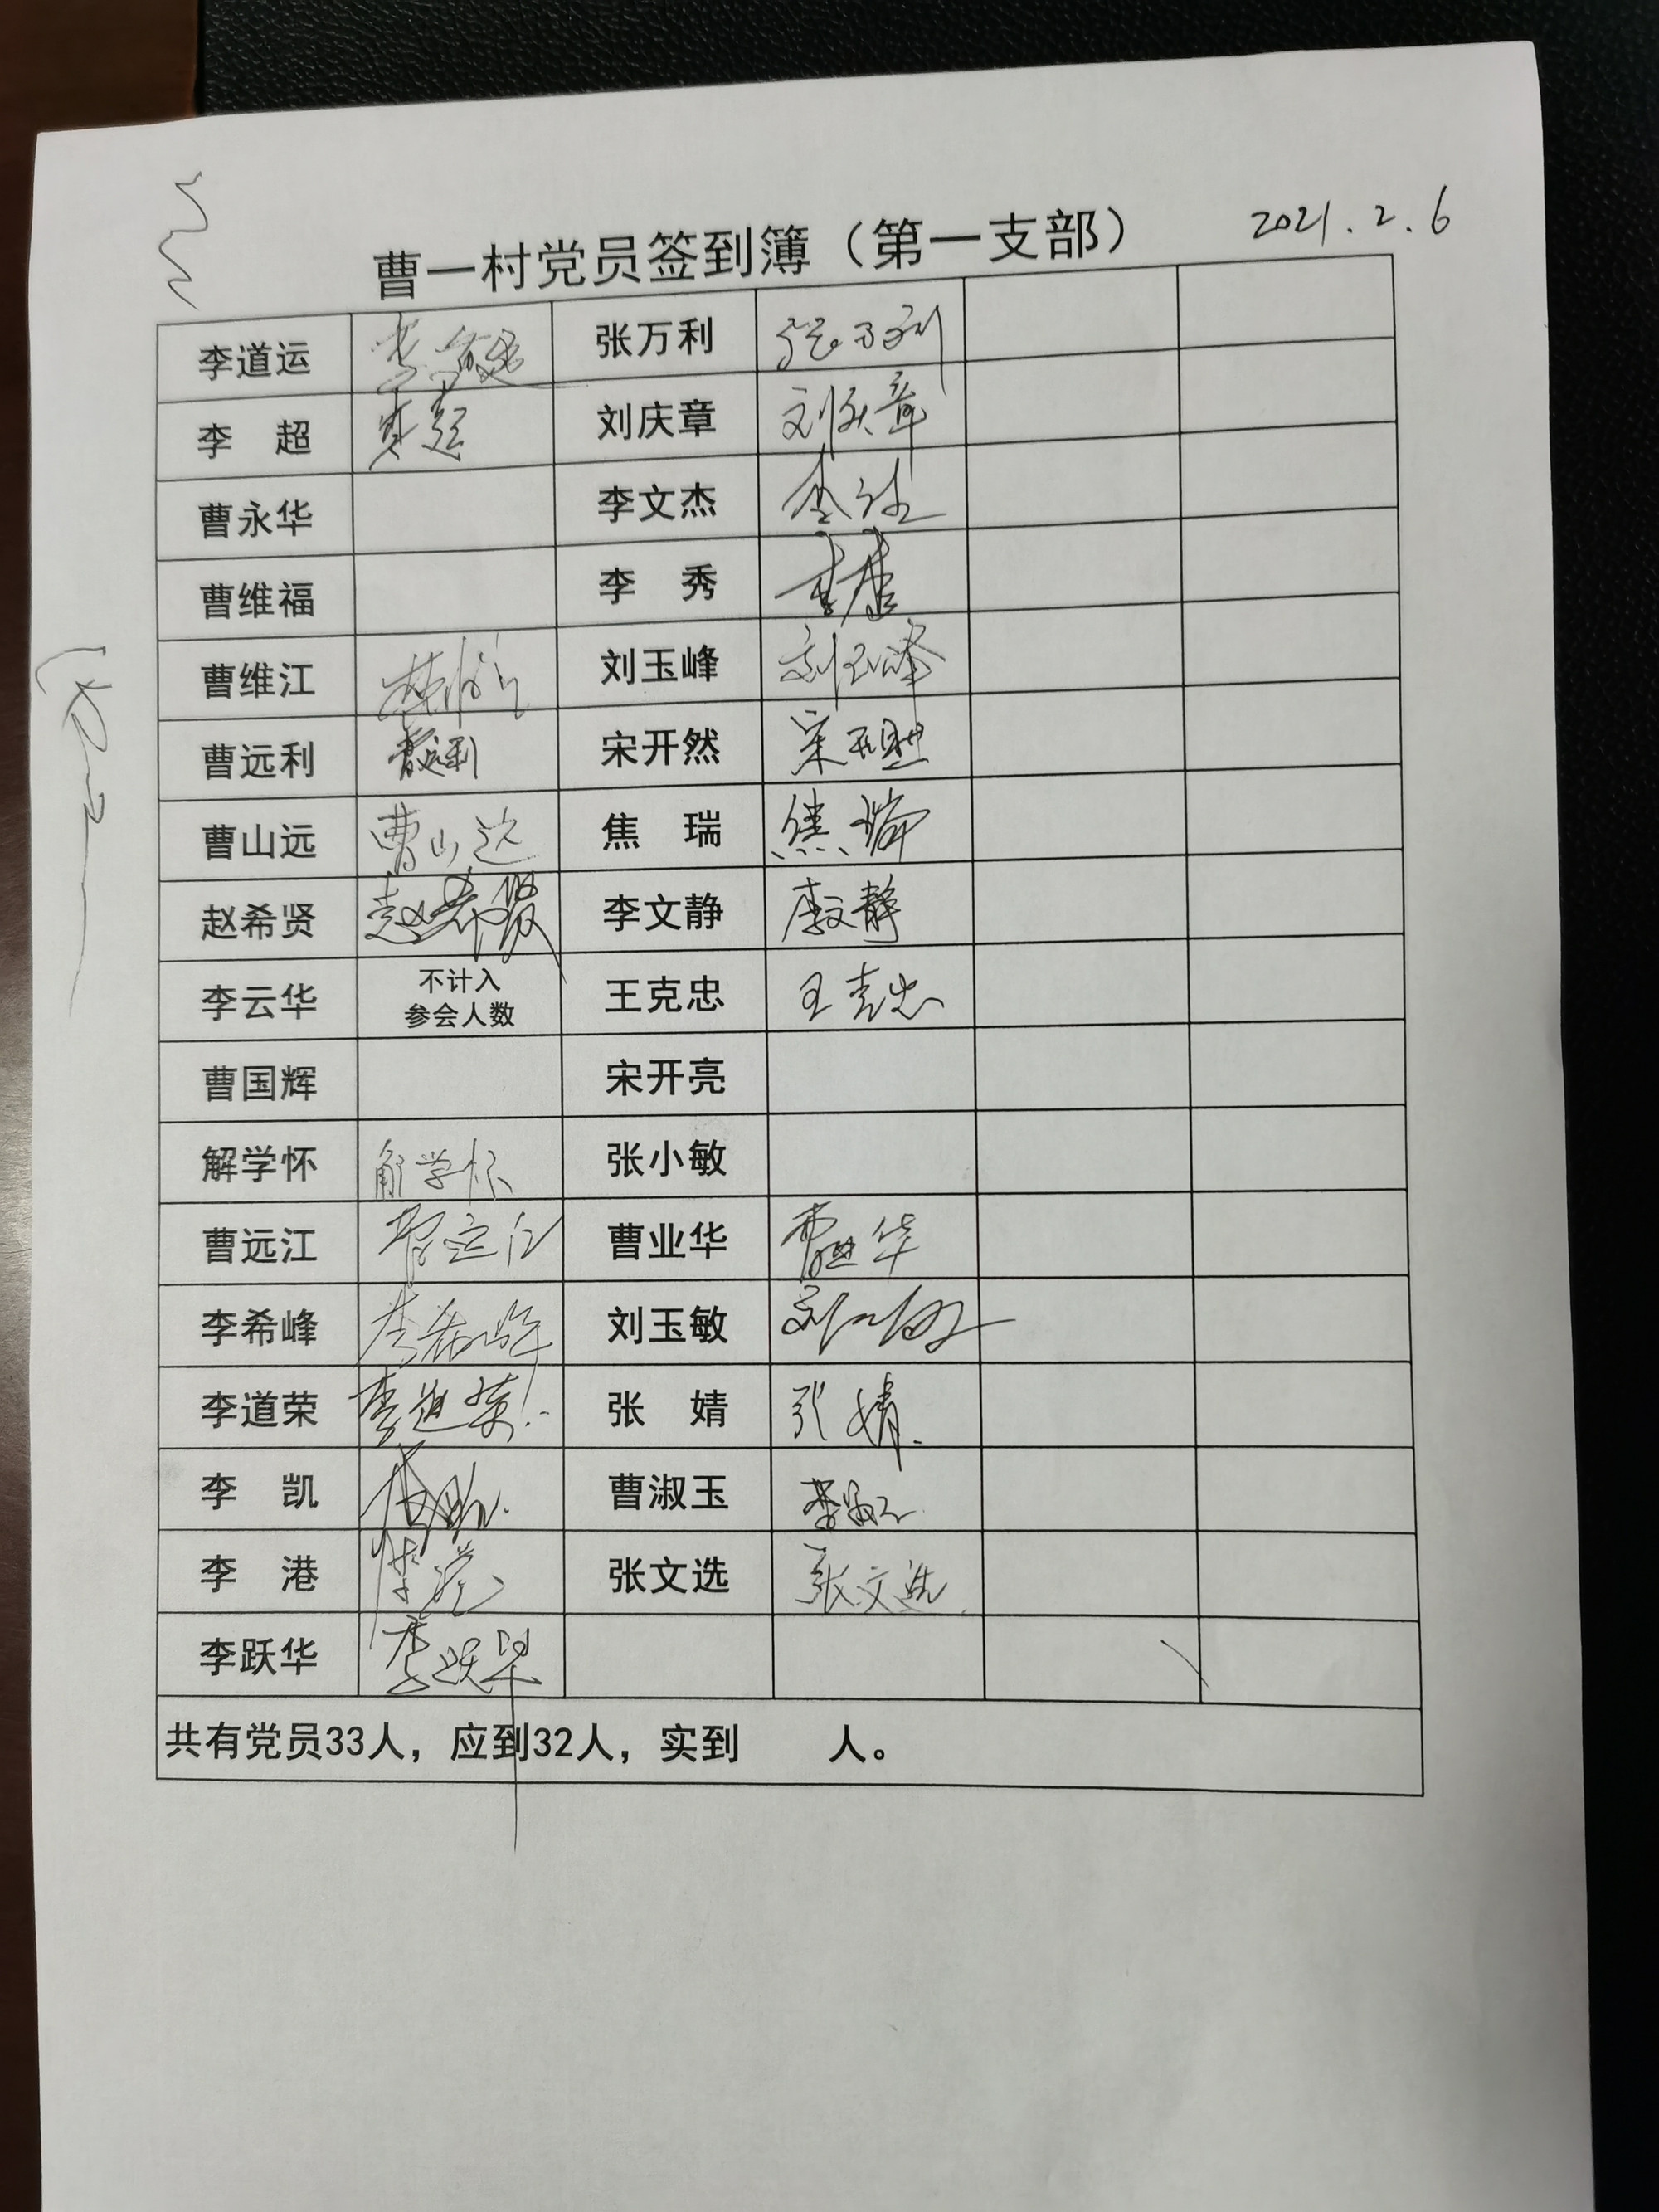 曹一村党员签到簿（第一支部） 2021.2.6
李道运 张万利 张万利
李 超 李超 刘庆章 刘庆章
曹永华 李文杰
曹维福 李 秀
曹维江 刘玉峰 刘玉峰
曹远利 曹远利 宋开然 宋开然
曹山远 曹山远 焦 瑞 焦瑞
赵希贤 赵希贤 李文静 李文静
李云华 不计入 王克忠 王克忠
参会人数
曹国辉 宋开亮
解学怀 解学怀 张小敏
曹远江 曹远江 曹业华 曹业华
李希峰 李希峰 刘玉敏
李道荣 李道荣 张 婧 张婧
李 凯 曹淑玉
李 港 李港 张文选 张文选
李跃华 李跃华
共有党员33人，应到32人，实到 人。